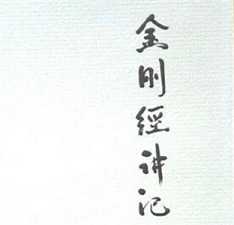 金刚經讲记